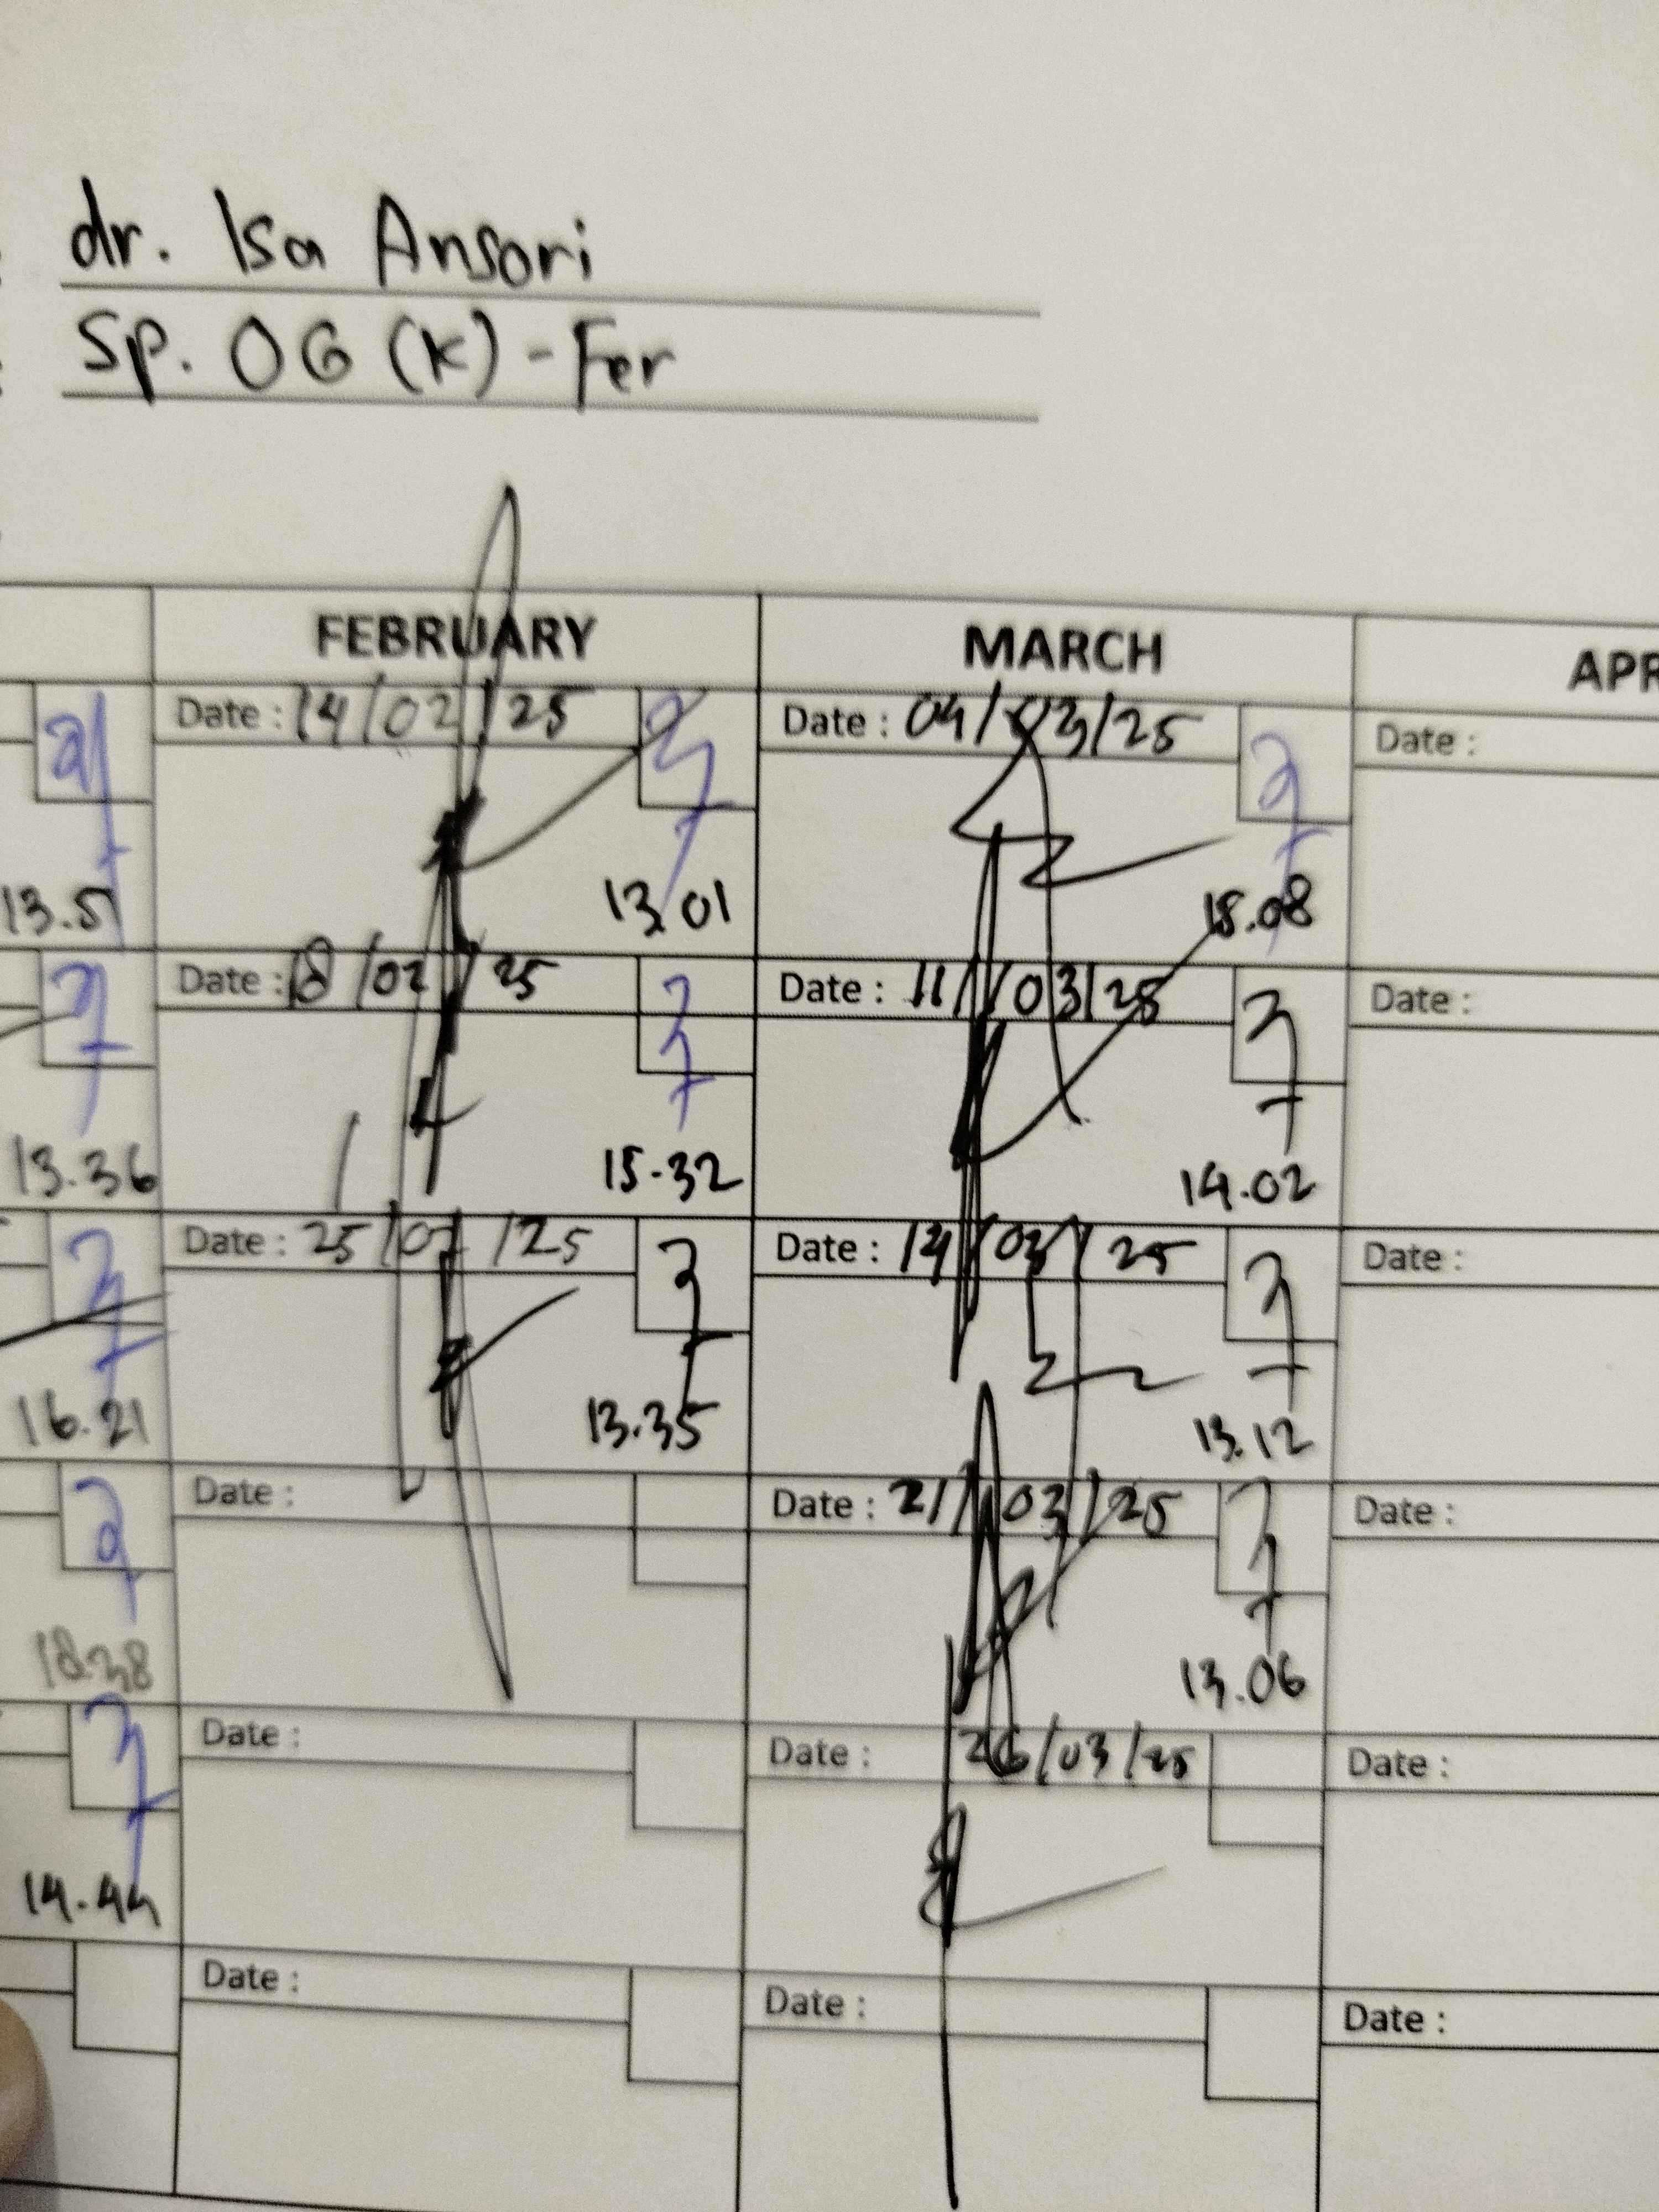 dr. Isa Ansori
Sp. OG (K) - Fer
FEBRUARY MARCH APR
Date : 14/02/25 Date : 04/03/25 Date :
13.51 13.01 15.08
Date : 18/02/25 Date : 11/03/25 Date :
13.36 15.32 14.02
Date : 25/02/25 Date : 14/03/25 Date :
16.21 13.35 13.12
Date : Date : 21/03/25 Date :
18.38 13.06
Date : Date : 26/03/25 Date :
14.44
Date : Date : Date :